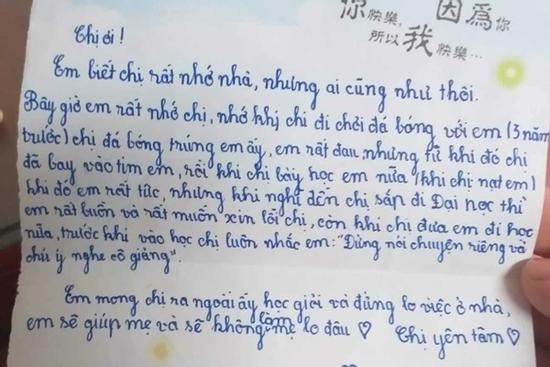 你快樂, 因爲你
所以我快樂...
Chị ơi!
Em biết chị rất nhớ nhà, nhưng ai cũng như thôi.
Bây giờ em rất nhớ chị, nhớ khi chị đi chơi đá bóng với em (3 năm
trước) chị đá bóng trúng em ấy, em rất đau, nhưng từ khi đó chị
đã bay vào tim em, rồi khi chị bày học em nữa (khi chị nạt em)
khi đó em rất tức, nhưng khi nghĩ đến chị sắp đi Đại học thì
em rất buồn và rất muốn xin lỗi chị, còn khi chị đưa em đi học
nữa, trước khi vào học chị luôn nhắc em: "Đừng nói chuyện riêng và
chú ý nghe cô giảng".
Em mong chị ra ngoài ấy học giỏi và đừng lo việc ở nhà,
em sẽ giúp mẹ và sẽ không làm mẹ lo đâu ♡ Chị yên tâm ♡